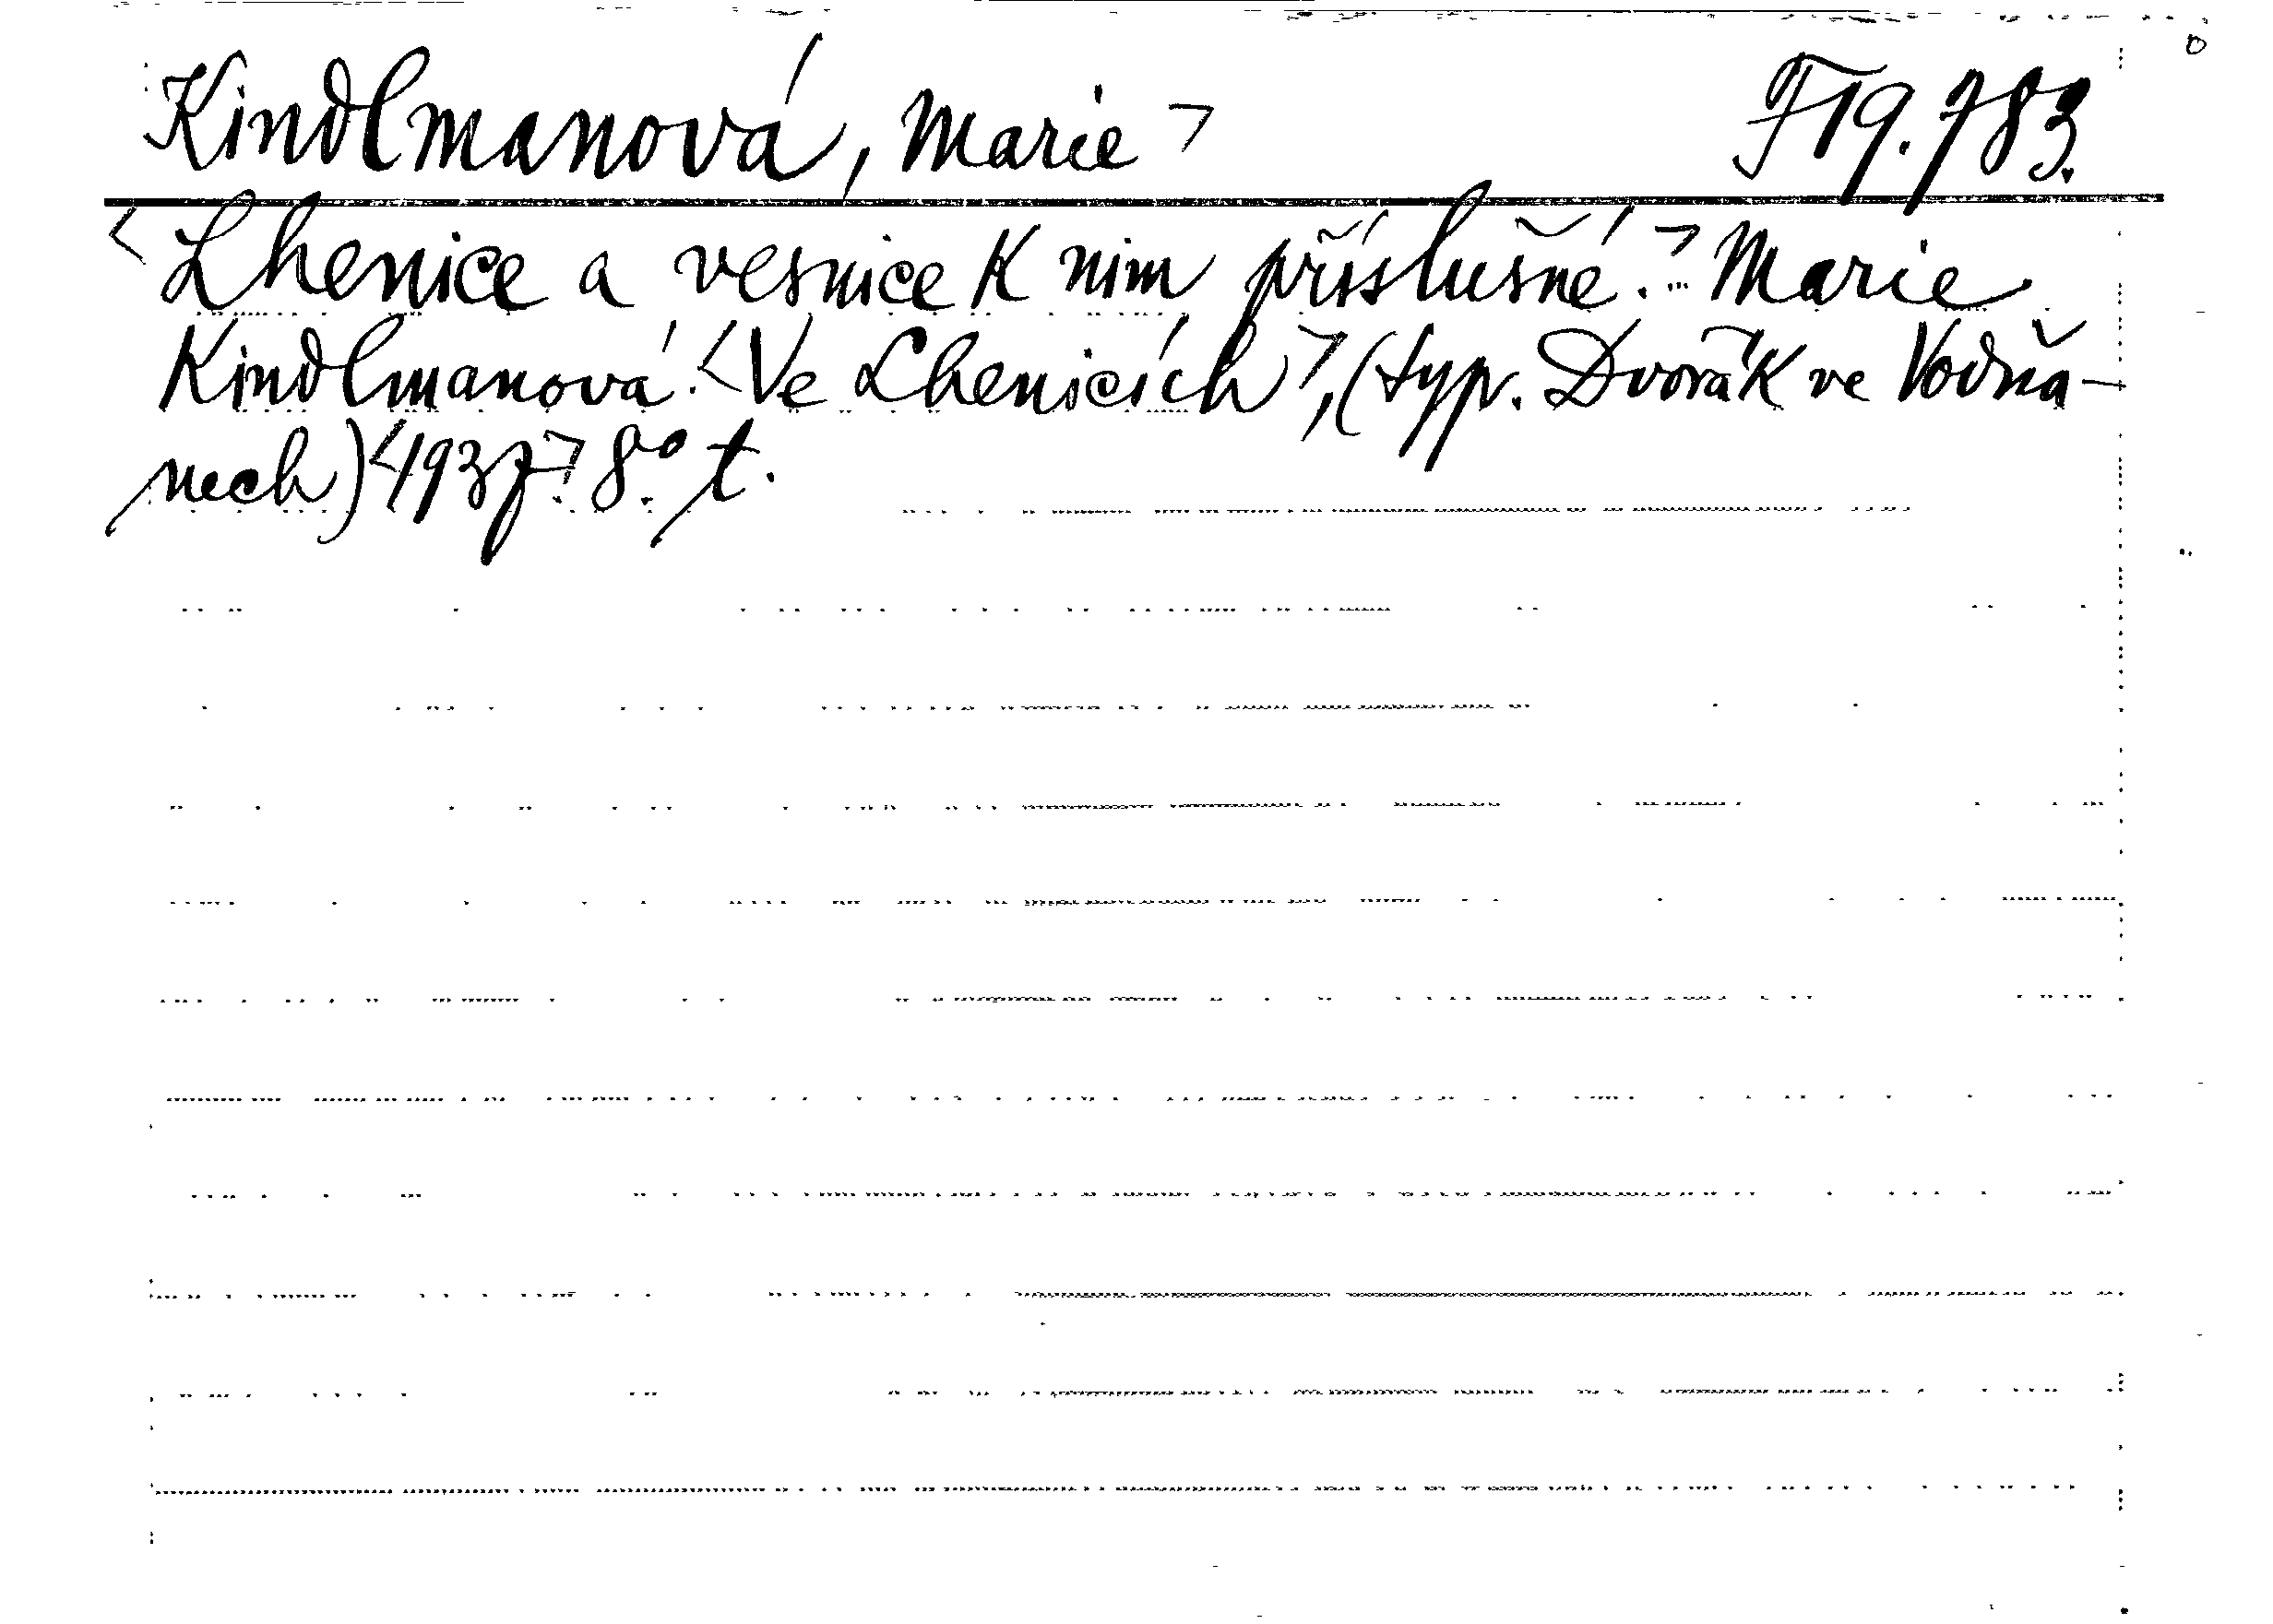 Kindlmanová, Marie ㄱ F 19.783.
<Lhenice a vesnice k nim příslušné.> Marie
Kindlmanová. <Ve Lhenicích>, (typ. Dvořák ve Vodňa-
nech) <1937>. 8.° t.